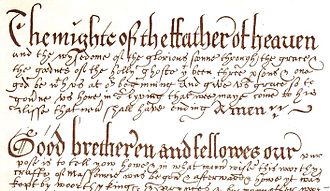 The mighte of the ffather of heaven
and the wysedome of the glorious sonne through the grace &
the goodnes of the holly ghoste yt been three psons & one
god be wth us at or beginning and give us grace to
govrne us here in or lyving that wee maye come to his
blisse that nevr shall have ending Amen
Good bretheren and fellowes our
pose is to tell you how and in what manr wise this worthy
craft of Massonrie was begun & afterwards how it was
kept by worthy kings